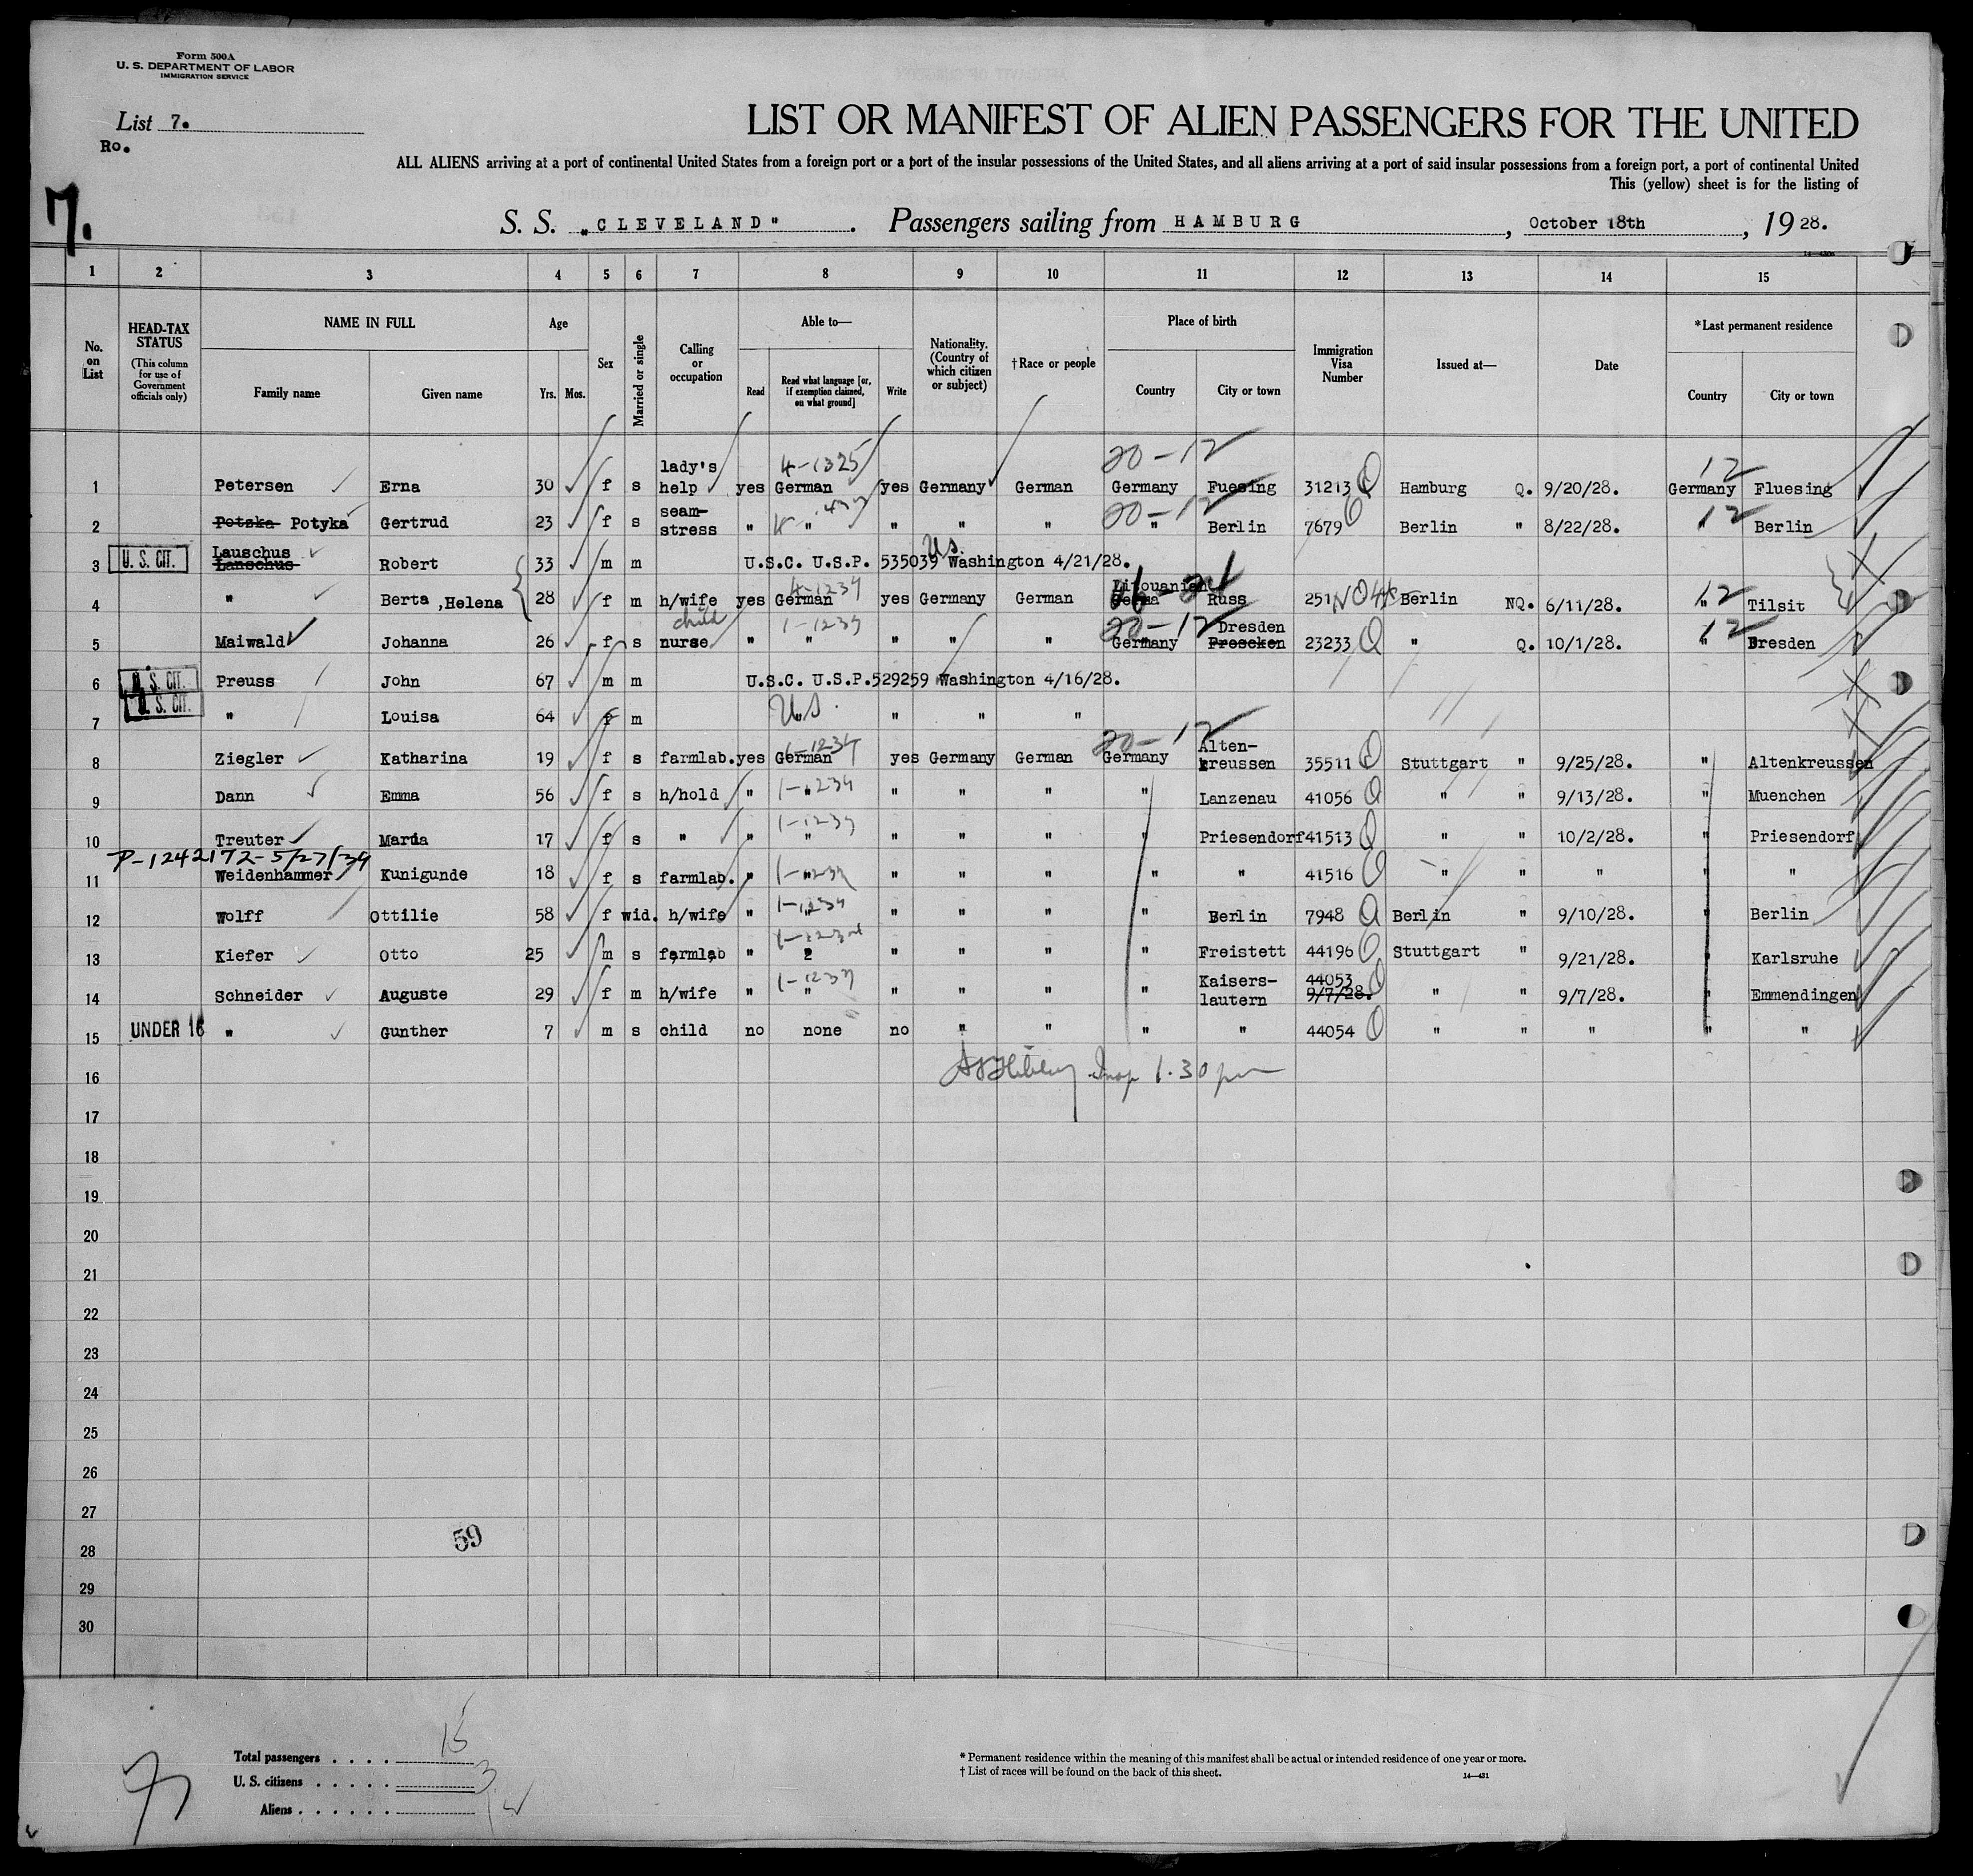 Form 500A
U. S. DEPARTMENT OF LABOR
IMMIGRATION SERVICE
List 7.
Ro.
7.
LIST OR MANIFEST OF ALIEN PASSENGERS FOR THE UNITED
ALL ALIENS arriving at a port of continental United States from a foreign port or a port of the insular possessions of the United States, and all aliens arriving at a port of said insular possessions from a foreign port, a port of continental United
This (yellow) sheet is for the listing of
S. S. „CLEVELAND" . Passengers sailing from HAMBURG , October 18th , 19 28.
1 2 3 4 5 6 7 8 9 10 11 12 13 14 15
No. on List
HEAD-TAX STATUS
(This column for use of Government officials only)
NAME IN FULL
Family name Given name
Age
Yrs. Mos.
Sex
Married or single
Calling or occupation
Able to—
Read Read what language [or, if exemption claimed, on what ground] Write
Nationality. (Country of which citizen or subject)
†Race or people
Place of birth
Country City or town
Immigration Visa Number
Issued at—
Date
*Last permanent residence
Country City or town
20-12 12
1 Petersen Erna 30 f s lady's help yes German 4-1325 yes Germany German Germany Fuesing 31213 Q Hamburg Q. 9/20/28. Germany Fluesing
20-12 12
2 Potzka Potyka Gertrud 23 f s seam-stress " " " " " " Berlin 7679 Berlin " 8/22/28. " Berlin
3 U. S. CIT. Lauschus Lanschus Robert 33 m m U.S.C. U.S.P. 535039 Washington 4/21/28. US.
4 " Berta ,Helena 28 f m h/wife yes German 4-1234 yes Germany German Litouanien Russ 251 Berlin NQ. 6/11/28. " 12 Tilsit
5 Maiwald Johanna 26 f s child nurse " " 1-1234 " " " 20-12 Germany Dresden Prescken 23233 Q " Q. 10/1/28. " 12 Dresden
6 U. S. CIT. Preuss John 67 m m U.S.C. U.S.P.529259 Washington 4/16/28.
7 U. S. CIT. " Louisa 64 f m U.S. " " "
8 Ziegler Katharina 19 f s farmlab. yes German 1-1234 yes Germany German 20-12 Germany Alten-kreussen 35511 Q Stuttgart " 9/25/28. " Altenkreussen
9 Dann Emma 56 f s h/hold " " 1-1234 " " " " Lanzenau 41056 Q " " 9/13/28. " Muenchen
10 Treuter Maria 17 f s " " " 1-1234 " " " " Priesendorf 41513 Q " " 10/2/28. " Priesendorf
P-1242172-5/27/39
11 Weidenhammer Kunigunde 18 f s farmlab. " " 1-1234 " " " " " 41516 Q " " " " "
12 Wolff Ottilie 58 f wid. h/wife " " 1-1234 " " " " Berlin 7948 Q Berlin " 9/10/28. " Berlin
13 Kiefer Otto 25 m s farmlab " " 1-1234 " " " " Freistett 44196 Q Stuttgart " 9/21/28. " Karlsruhe
14 Schneider Auguste 29 f m h/wife " " 1-1234 " " " " Kaisers-lautern 44053 9/7/28. Q " " 9/7/28. " Emmendingen
15 UNDER 16 " Gunther 7 m s child no none no " " " " 44054 Q " " " " "
16 Insp 1.30 pm
17
18
19
20
21
22
23
24
25
26
27
28
29
30
59
Total passengers . . . . 15
U. S. citizens . . . . . 3
Aliens . . . . . .
* Permanent residence within the meaning of this manifest shall be actual or intended residence of one year or more.
† List of races will be found on the back of this sheet.
14—431